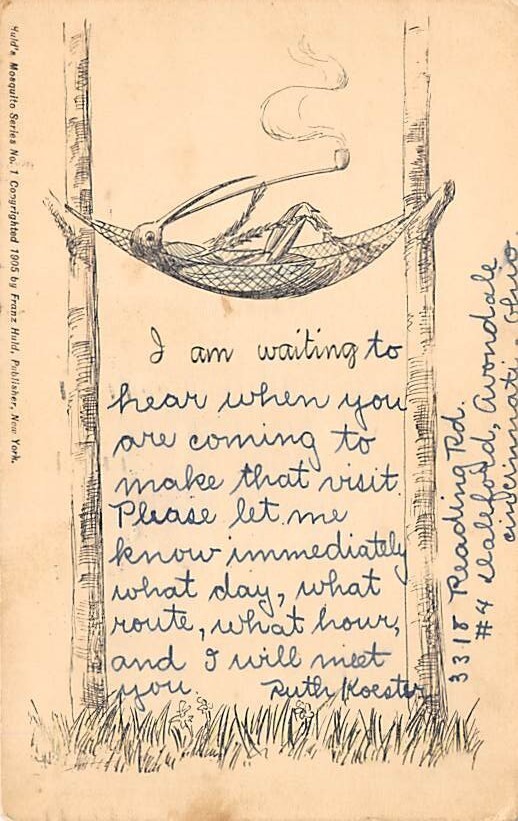 Huld's Mosquito Series No. 1 Copyrighted 1905 by Franz Huld, Publisher, New York.
I am waiting to
hear when you
are coming to
make that visit.
Please let me
know immediately
what day, what
route, what hour,
and I will meet
you. Ruth Koester
3318 Reading Rd.
#4 Avondale
Cincinnati, Ohio